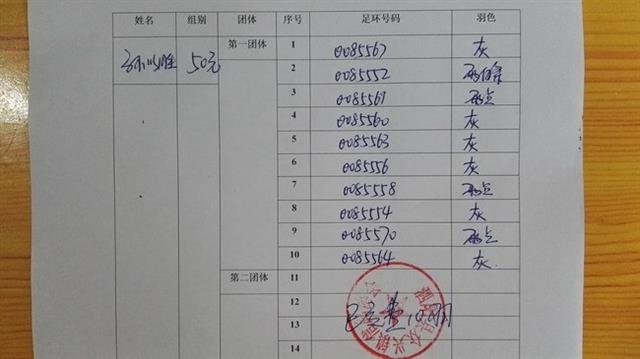 姓名 组别 团体 序号 足环号码 羽色
50元 第一团体 1 0085567 灰
2 0085552
3 0085561 雨点
4 0085560 灰
5 0085563 灰
6 0085556 灰
7 0085558 雨点
8 0085554 灰
9 0085570 雨点
10 0085564 灰
第二团体 11
12
13
14